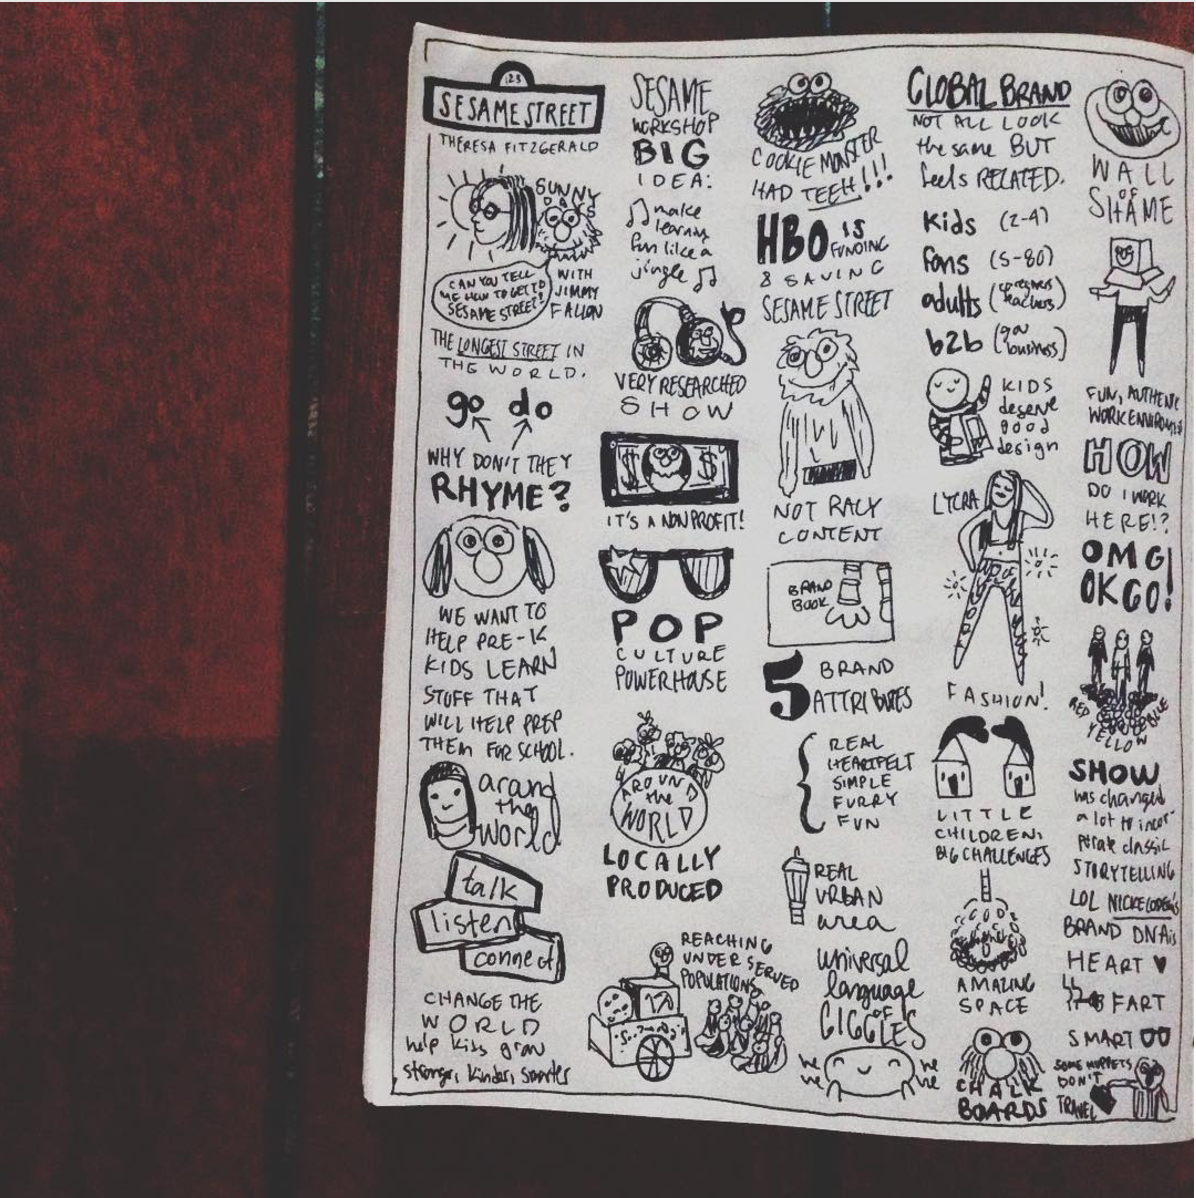 123
SESAME STREET
THERESA FITZGERALD
SUNNY
DAYS
WITH
JIMMY
FALLON
CAN YOU TELL
ME HOW TO GET TO
SESAME STREET?
THE LONGEST STREET IN
THE WORLD.
go do
WHY DON'T THEY
RHYME?
WE WANT TO
HELP PRE-K
KIDS LEARN
STUFF THAT
WILL HELP PREP
THEM FOR SCHOOL.
around
the
world
talk
listen
connect
CHANGE THE
WORLD
help kids grow
stronger, kinder, smarter
SESAME
WORKSHOP
BIG
IDEA:
make
learning
fun like a
jingle
VERY RESEARCHED
SHOW
$ $
IT'S A NONPROFIT!
POP
CULTURE
POWERHOUSE
AROUND
the
WORLD
LOCALLY
PRODUCED
REACHING
UNDERSERVED
POPULATIONS
COOKIE MONSTER
HAD TEETH!!!
HBO IS
FUNDING
& SAVING
SESAME STREET
NOT RACY
CONTENT
BRAND
BOOK
5 BRAND
ATTRIBUTES
REAL
HEARTFELT
SIMPLE
FURRY
FUN
REAL
URBAN
area
universal
language
OF
GIGGLES
he he
he he
GLOBAL BRAND
NOT ALL LOOK
the same BUT
feels RELATED.
Kids (2-4)
fans (5-80)
adults (caregivers
teachers)
b2b (
business)
KIDS
deserve
good
design
LYCRA
FASHION!
LITTLE
CHILDREN,
BIG CHALLENGES
AMAZING
SPACE
CHALK
BOARDS
WALL
OF
SHAME
FUN, AUTHENTIC
WORK ENVIRONMENT
HOW
DO I WORK
HERE!?
OMG
OKGO!
RED
YELLOW
BLUE
SHOW
has changed
a lot to incor-
porate classic
STORYTELLING
LOL NICKELODEON'S
BRAND DNA is
HEART
FART
SMART
SOME MUPPETS
DON'T
TRAVEL